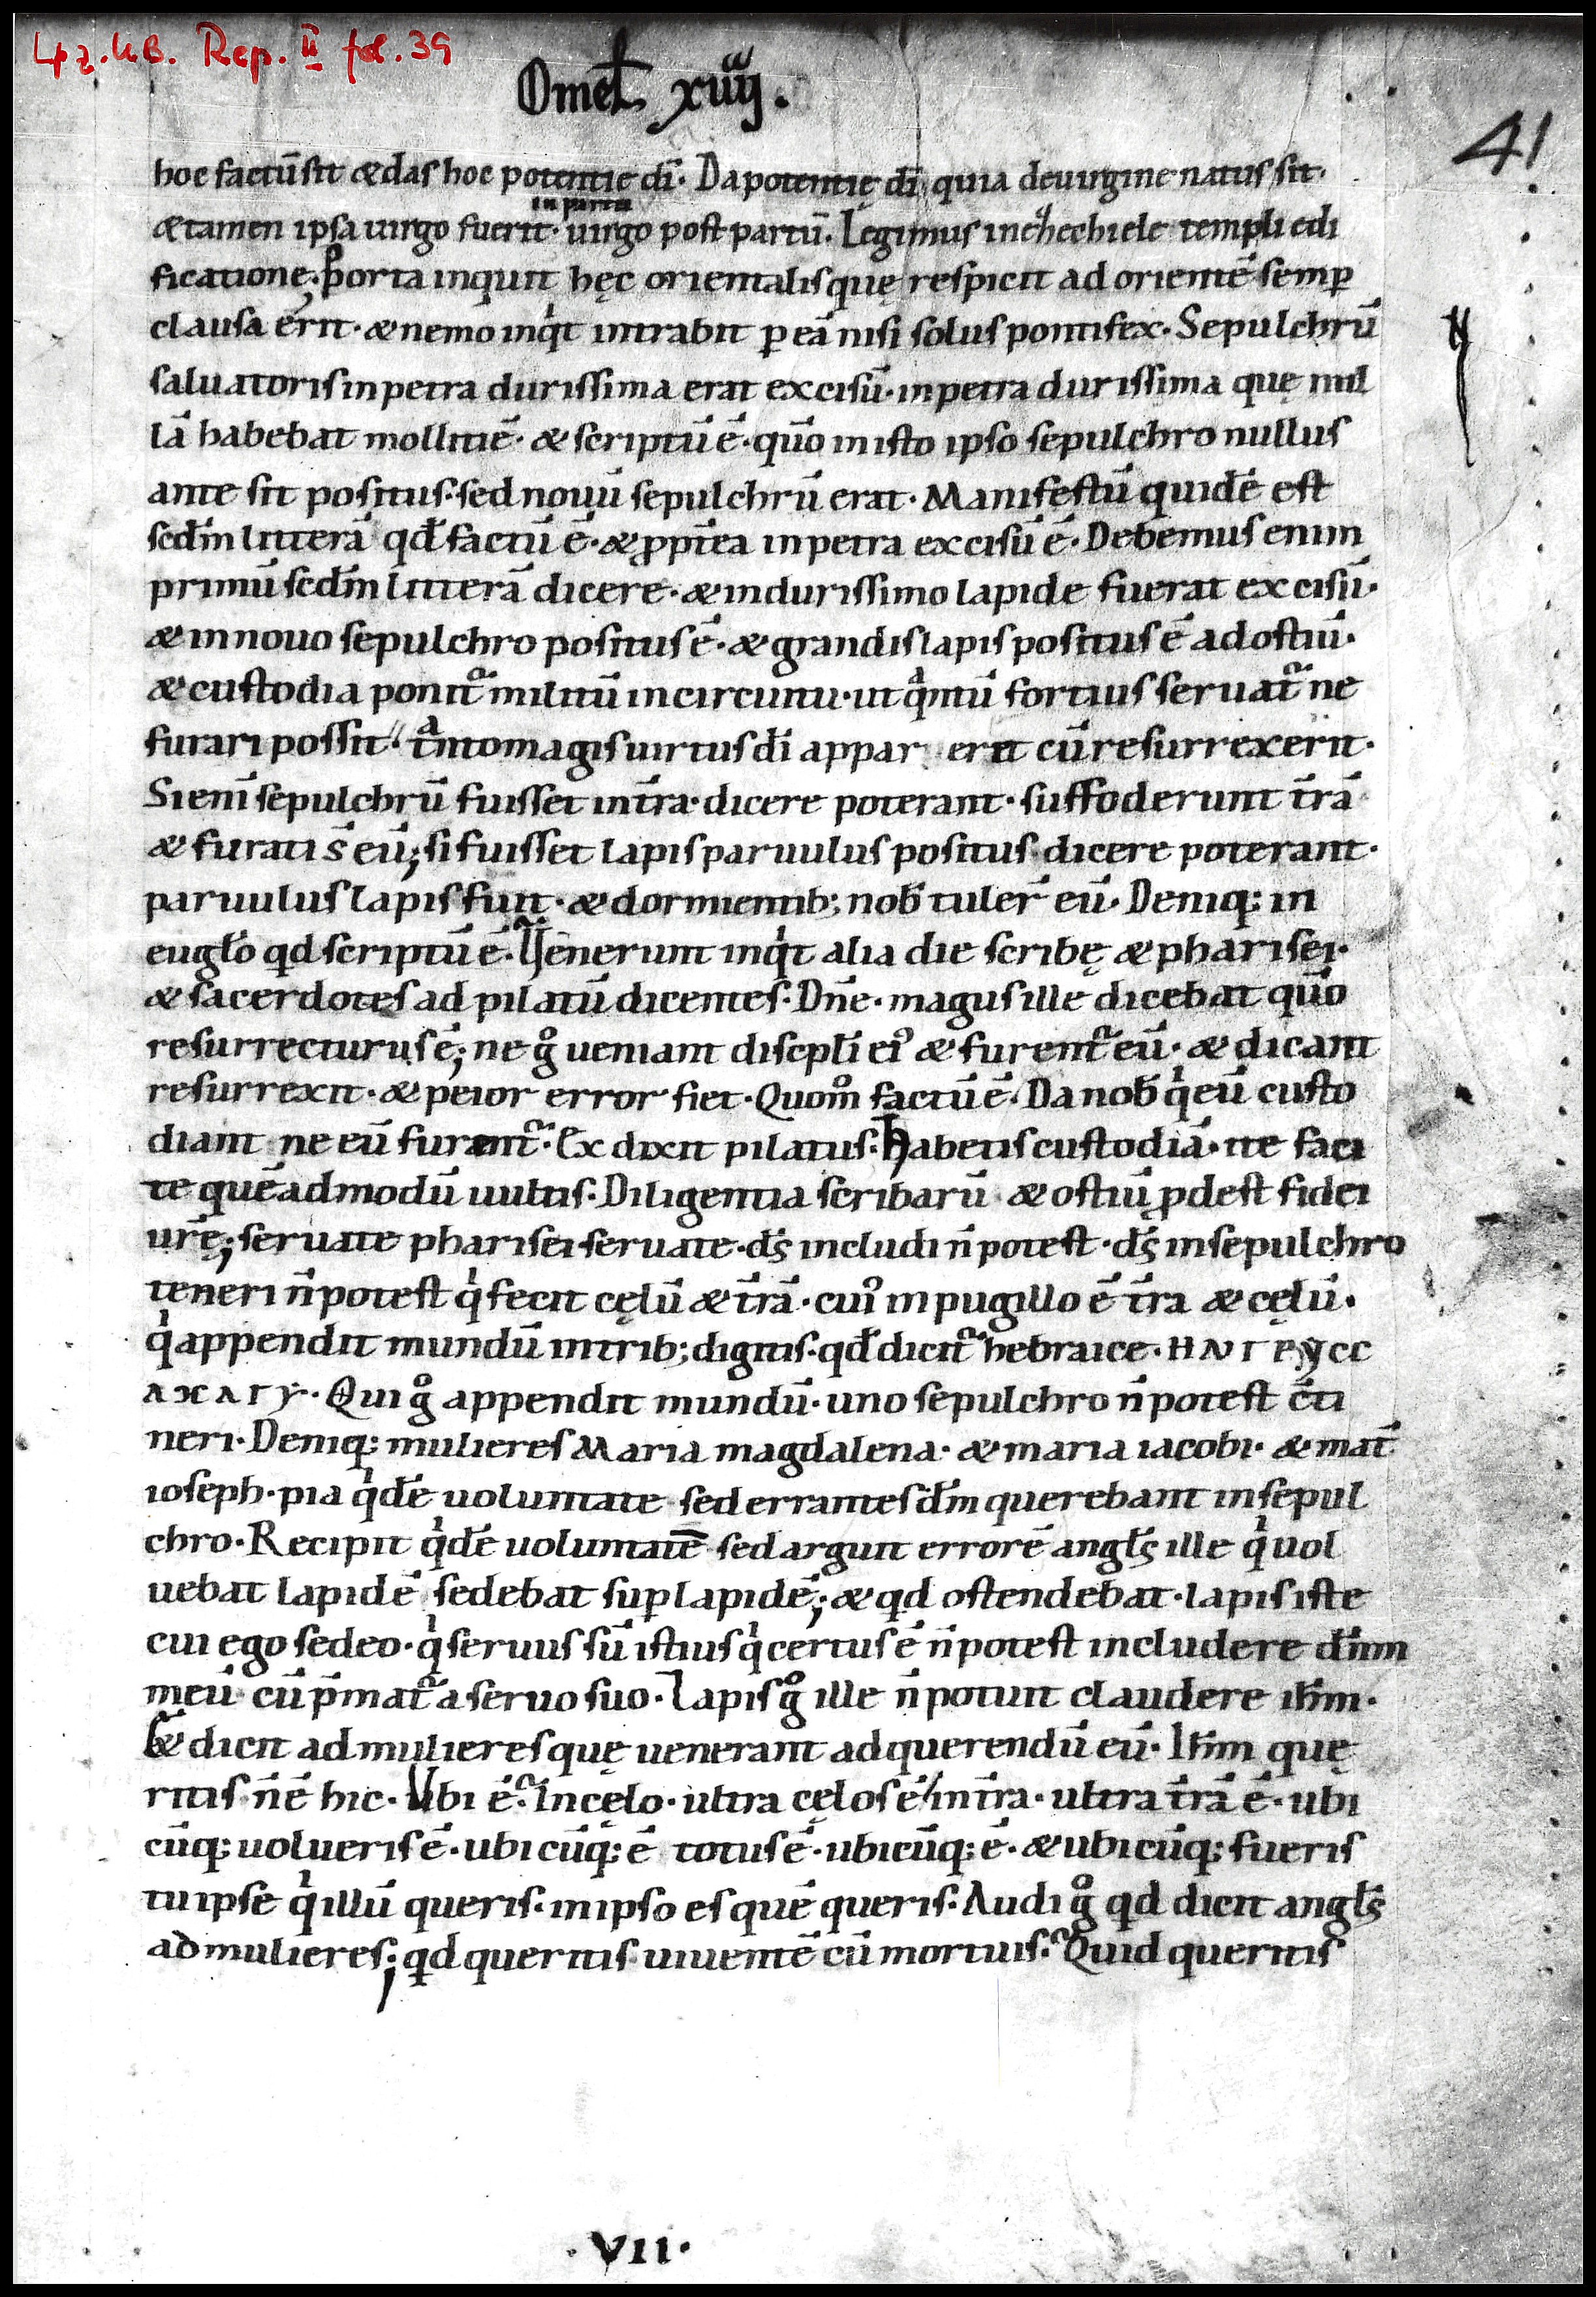 Lpz. UB. Rep. II fol. 39
Omel xiiij.
41
hoc factū sit & das hoc potentie dī· Da potentię dī quia de uirgine natus sit·
in partu
& tamen ipsa uirgo fuerit· uirgo post partū. Legimus in ehechiele templi edi
ficatione; Porta inquit hęc orientalis quę respicit ad orientē semp
clausa erit· & nemo inqit intrabit p eā nisi solus pontifex· Sepulchrū
saluatoris in petra durissima erat excisū· in petra durissima quę nul
lā habebat mollitiē· & scriptū ē· quō in isto ipso sepulchro nullus
ante sit positus· sed nouū sepulchrū erat· Manifestū quidē est
scdm litterā qd factū ē· & ppťea in petra excisū ē· Debemus enim
primū scdm litterā dicere· & in durissimo lapide fuerat excisū·
& in nouo sepulchro positus ē· & grandis lapis positus ē ad ostiū·
& custodia ponit militū in circuitu· ut qntū fortius seruat ne
furari possit· tnto magis uirtus dī appar erit cū resurrexerit·
Si enī sepulchrū fuisset in tra· dicere poterant· suffoderunt trā
& furati s̄ eū; si fuisset lapis paruulus positus dicere poterant·
paruulus lapis fuit· & dormientib; nob tuler eū· Deniq; in
euglo qd scriptū ē· Uenerunt inqit alia die scribę & pharisei·
& sacerdotes ad pilatū dicentes· Dn̄e· magus ille dicebat quō
resurrecturus ē; ne g ueniant discpli ei & furent eū· & dicant
resurrexit· & peior error fiet· Quom factū ē· Da nob q eū custo
diant ne eū furent· Ex dixit pilatus· habetis custodiā· ite faci
te quēadmodū uultis· Diligentia scribarū & ostiū pdest fidei
urę; seruate pharisei seruate· ds includi n̄ potest· ds in sepulchro
teneri n̄ potest q fecit cęlū & trā· cui in pugillo ē tra & cęlū·
q appendit mundū in trib; digitis· qd dicit hebraice·
Qui g appendit mundū· uno sepulchro n̄ potest c̄ti
neri· Deniq; mulieres Maria magdalena· & maria iacobi· & mať
ioseph· pia qdē uoluntate sed errantes dm̄ querebant in sepul
chro· Recipit qdē uoluntatē sed arguit errorē angls ille q uol
uebat lapidē sedebat sup lapidē; & qd ostendebat· lapis iste
cui ego sedeo· q seruus sū istius q certus ē n̄ potest includere dn̄m
meū cū p̄mat a seruo suo· Lapis g ille n̄ potuit claudere ihm·
& dicit ad mulieres quę uenerant ad querendū eū· Ihm quę
ritis n̄ ē hic· Ubi ē· In cęlo· ultra cęlos ē in tra· ultra trā ē· ubi
cūq; uolueris ē· ubicūq; ē totus ē· ubicūq; ē· & ubicūq; fueris
tu ipse q illū queris· in ipso es quē queris· Audi g qd dicit angls
ad mulieres; qd queritis uiuentē cū mortuis· Quid queritis
·VII·